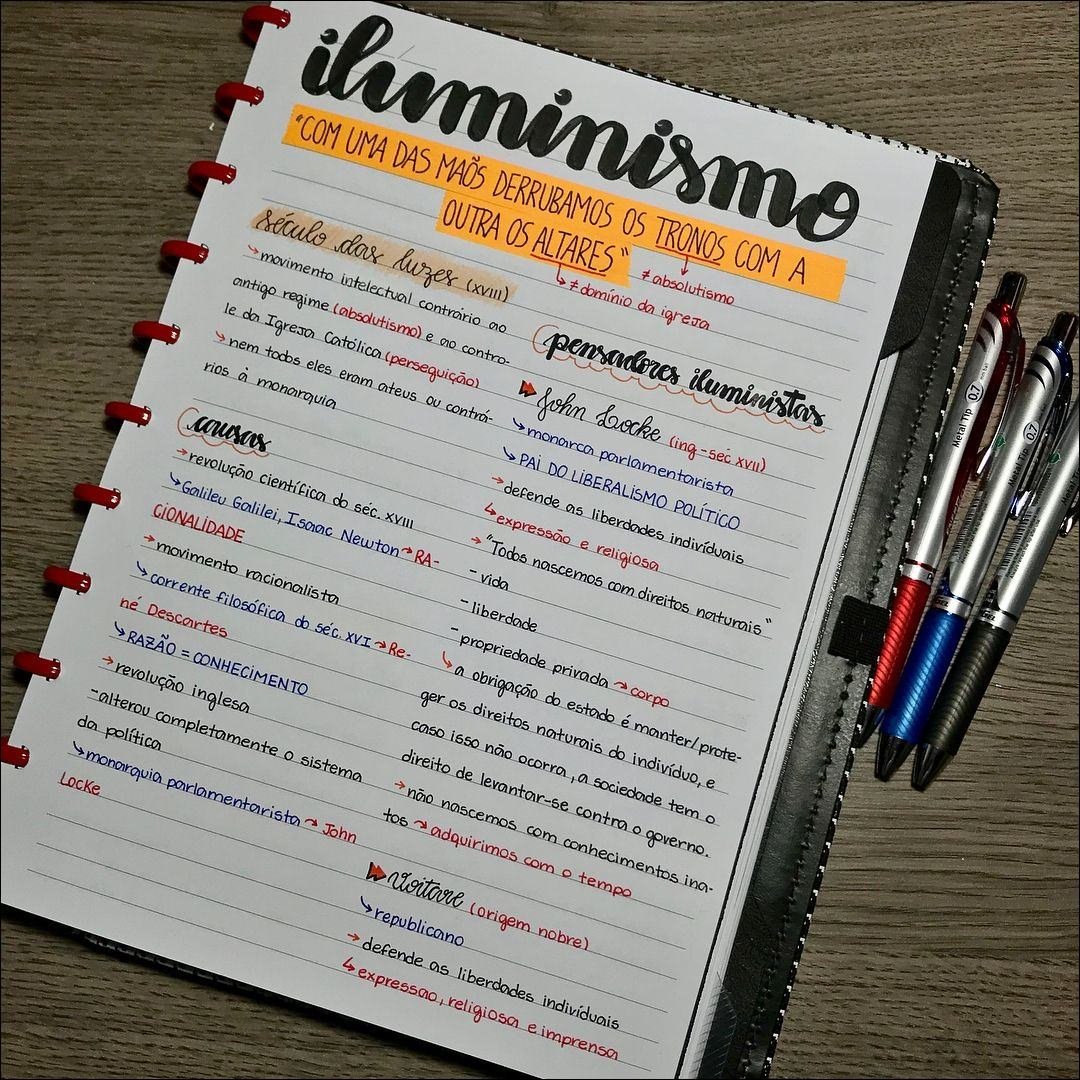 iluminismo
"COM UMA DAS MAÕS DERRUBAMOS OS TRONOS COM A
OUTRA OS ALTARES"
≠ absolutismo
≠ domínio da igreja
século das luzes (XVIII)
→ movimento intelectual contrário ao
antigo regime (absolutismo) e ao contro-
le da Igreja Católica (perseguição)
→ nem todos eles eram ateus ou contrá-
rios à monarquia
causas
→ revolução científica do séc. XVIII
↳ Galileu Galilei, Isaac Newton → RA-
CIONALIDADE
→ movimento racionalista
↳ corrente filosófica do séc. XVI → Re-
né Descartes
↳ RAZÃO = CONHECIMENTO
→ revolução inglesa
- alterou completamente o sistema
da política
↳ monarquia parlamentarista → John
Locke
pensadores iluministas
John Locke (ing - séc XVII)
↳ monarca parlamentarista
↳ PAI DO LIBERALISMO POLÍTICO
→ defende as liberdades indivíduais
↳ expressão e religiosa
→ "Todos nascemos com direitos naturais"
- vida
- liberdade
- propriedade privada → corpo
↳ a obrigação do estado é manter/prote-
ger os direitos naturais do indivíduo, e
caso isso não ocorra, a sociedade tem o
direito de levantar-se contra o governo.
→ não nascemos com conhecimentos ina-
tos → adquirimos com o tempo
Voltaire (origem nobre)
↳ republicano
→ defende as liberdades indivíduais
↳ expressao, religiosa e imprensa
Metal Tip 0.7
Metal Tip 0.7